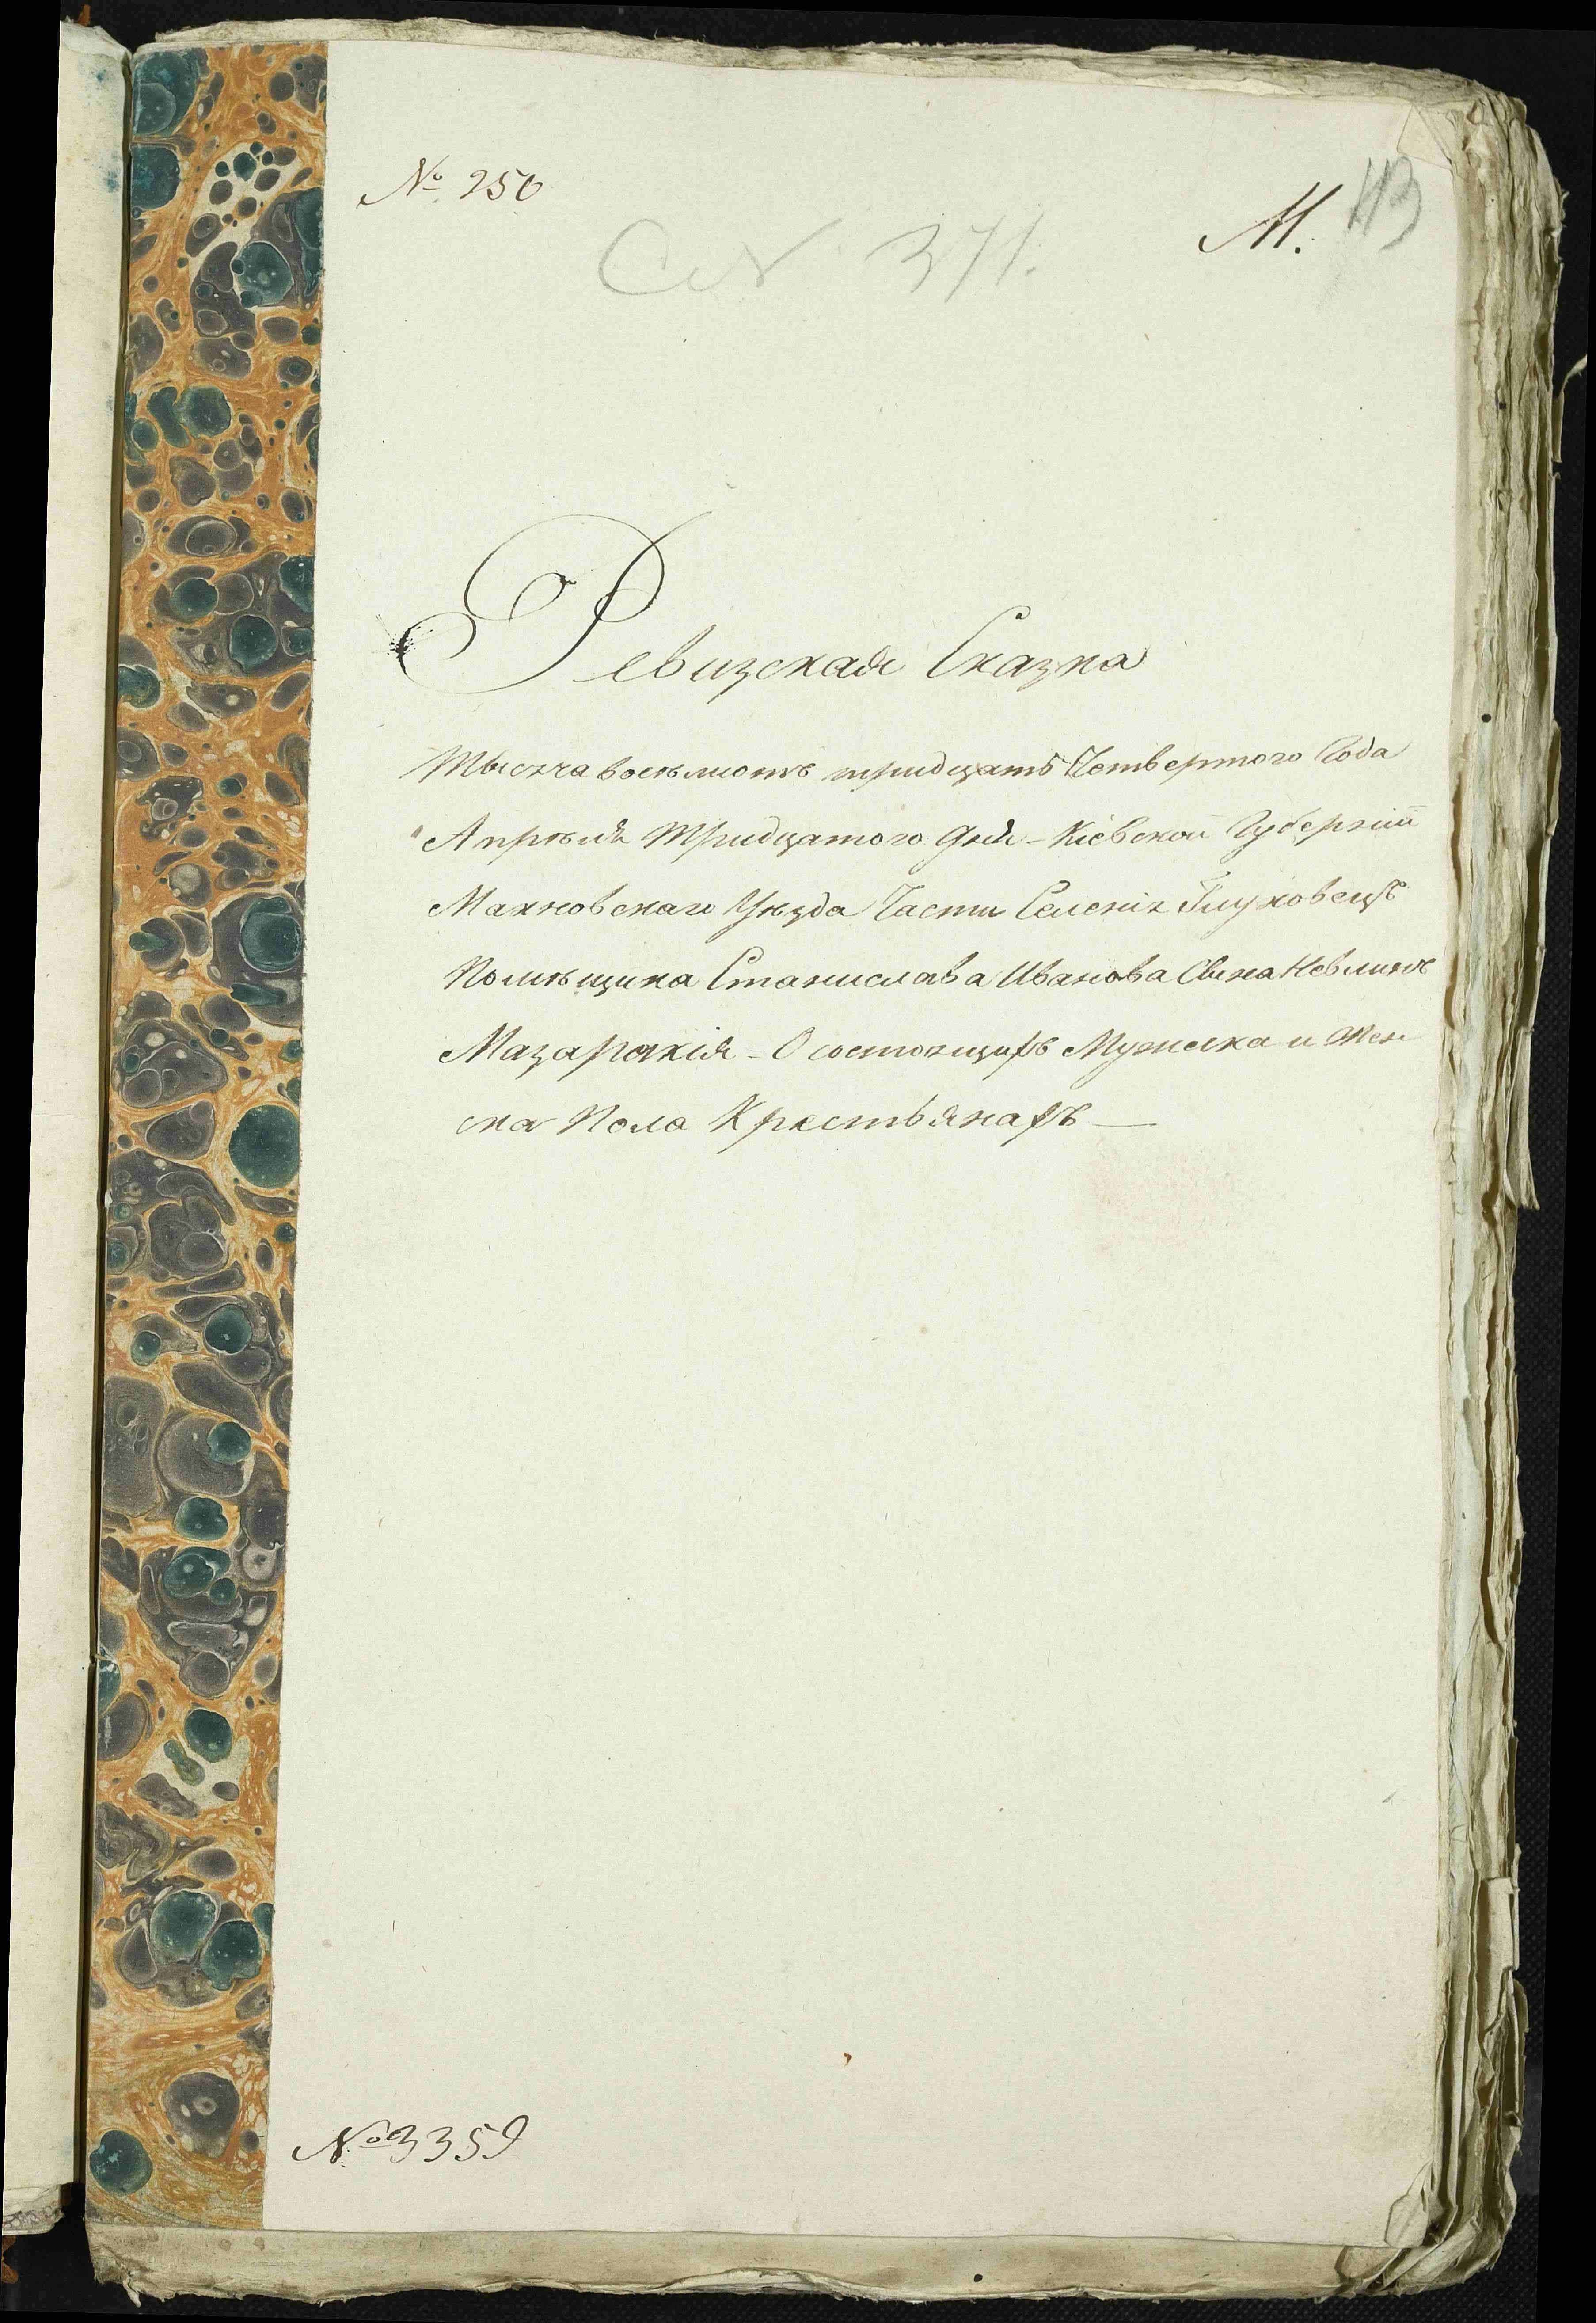 № 250
М. 113
№ 371.
Ревизская Сказка
Тысяча восемьсотъ тридцать Четвертого Года
Апрѣля Тридцатого Дня - Кіевской Губерніи
Махновскаго Уѣзда Части Селенія Глуховецъ
Помѣщика Станислава Иванова Сына
Мазаракія - О состоящихъ Мужеска и Жен
ска Пола Крестьянахъ —
№ 3359